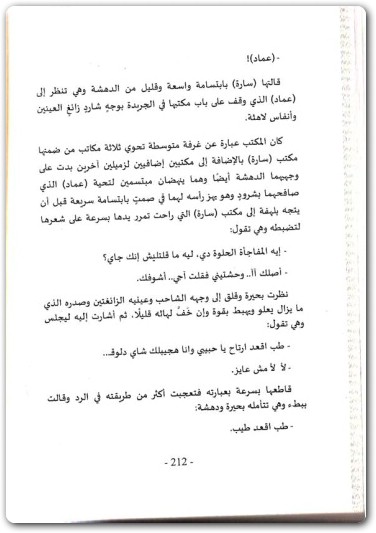 - (عماد)!
قالتها (سارة) بابتسامة واسعة وقليل من الدهشة وهي تنظر إلى
(عماد) الذي وقف على باب مكتبها في الجريدة بوجهٍ شاردٍ زائغ العينين
وأنفاس لاهثة.
كان المكتب عبارة عن غرفة متوسطة تحوي ثلاثة مكاتب من ضمنها
مكتب (سارة) بالإضافة إلى مكتبين إضافيين لزميلين آخرين بدت على
وجهيهما الدهشة أيضًا وهما ينهضان مبتسمين لتحية (عماد) الذي
صافحهما بشرودٍ وهو يهز رأسه لهما في صمتٍ بابتسامة سريعة قبل أن
يتجه بلهفة إلى مكتب (سارة) التي راحت تمرر يدها بسرعة على شعرها
لتضبطه وهي تقول:
- إيه المفاجأة الحلوة دي، ليه ما قلتليش إنك جاي؟
- أصلك أأ.. وحشتيني فقلت آجي.. أشوفك.
نظرت بحيرة وقلق إلى وجهه الشاحب وعينيه الزائغتين وصدره الذي
ما يزال يعلو ويهبط بقوة وإن خَفَّ لهاثه قليلًا، ثم أشارت إليه ليجلس
وهي تقول:
- طب اقعد ارتاح يا حبيبي وانا هجيبلك شاي دلوقـ...
- لأ لأ مش عايز.
قاطعها بسرعة بعبارته فتعجبت أكثر من طريقته في الرد وقالت
ببطء وهي تتأمله بحيرة ودهشة:
- طب اقعد طيب.
- 212 -